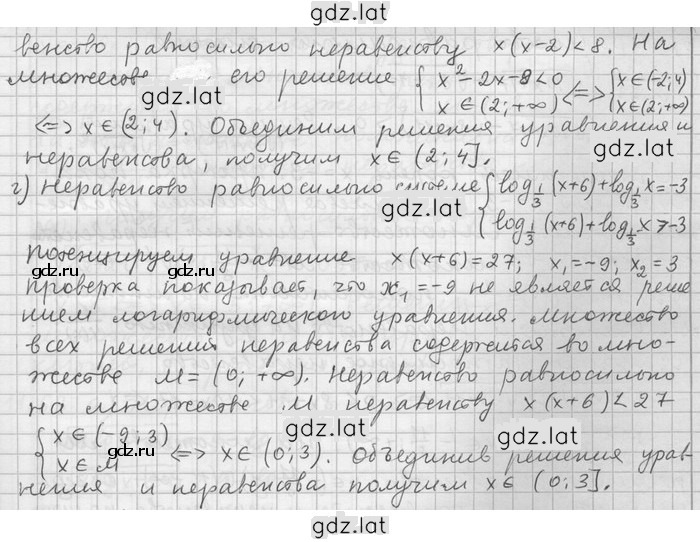 gdz.lat
венство равносильно неравенству x(x-2)<8. На
множестве его решение { x²-2x-8<0 <=> { x∈(-2;4)
gdz.lat
x∈(2;+∞) x∈(2;+∞)
gdz.lat
<=> x∈(2;4). Объединим решения уравнения и
неравенства, получим x∈(2;4].
г) Неравенство равносильно { log_{1/3}(x+6)+log_{1/3}x=-3
log_{1/3}(x+6)+log_{1/3}x>-3
Потенцируем уравнение x(x+6)=27; x₁=-9; x₂=3
gdz.lat gdz.lat gdz.lat
Проверка показывает, что x₁=-9 не является реше
нием логарифмического уравнения. Множество
всех решений неравенства содержится во мно-
жестве M=(0;+∞). Неравенство равносильно
на множестве M неравенству x(x+6)<27
{ x∈(-9;3)
x∈M <=> x∈(0;3). Объединив решения урав-
gdz.lat gdz.lat gdz.lat
нения и неравенства получим x∈(0;3].
gdz.lat